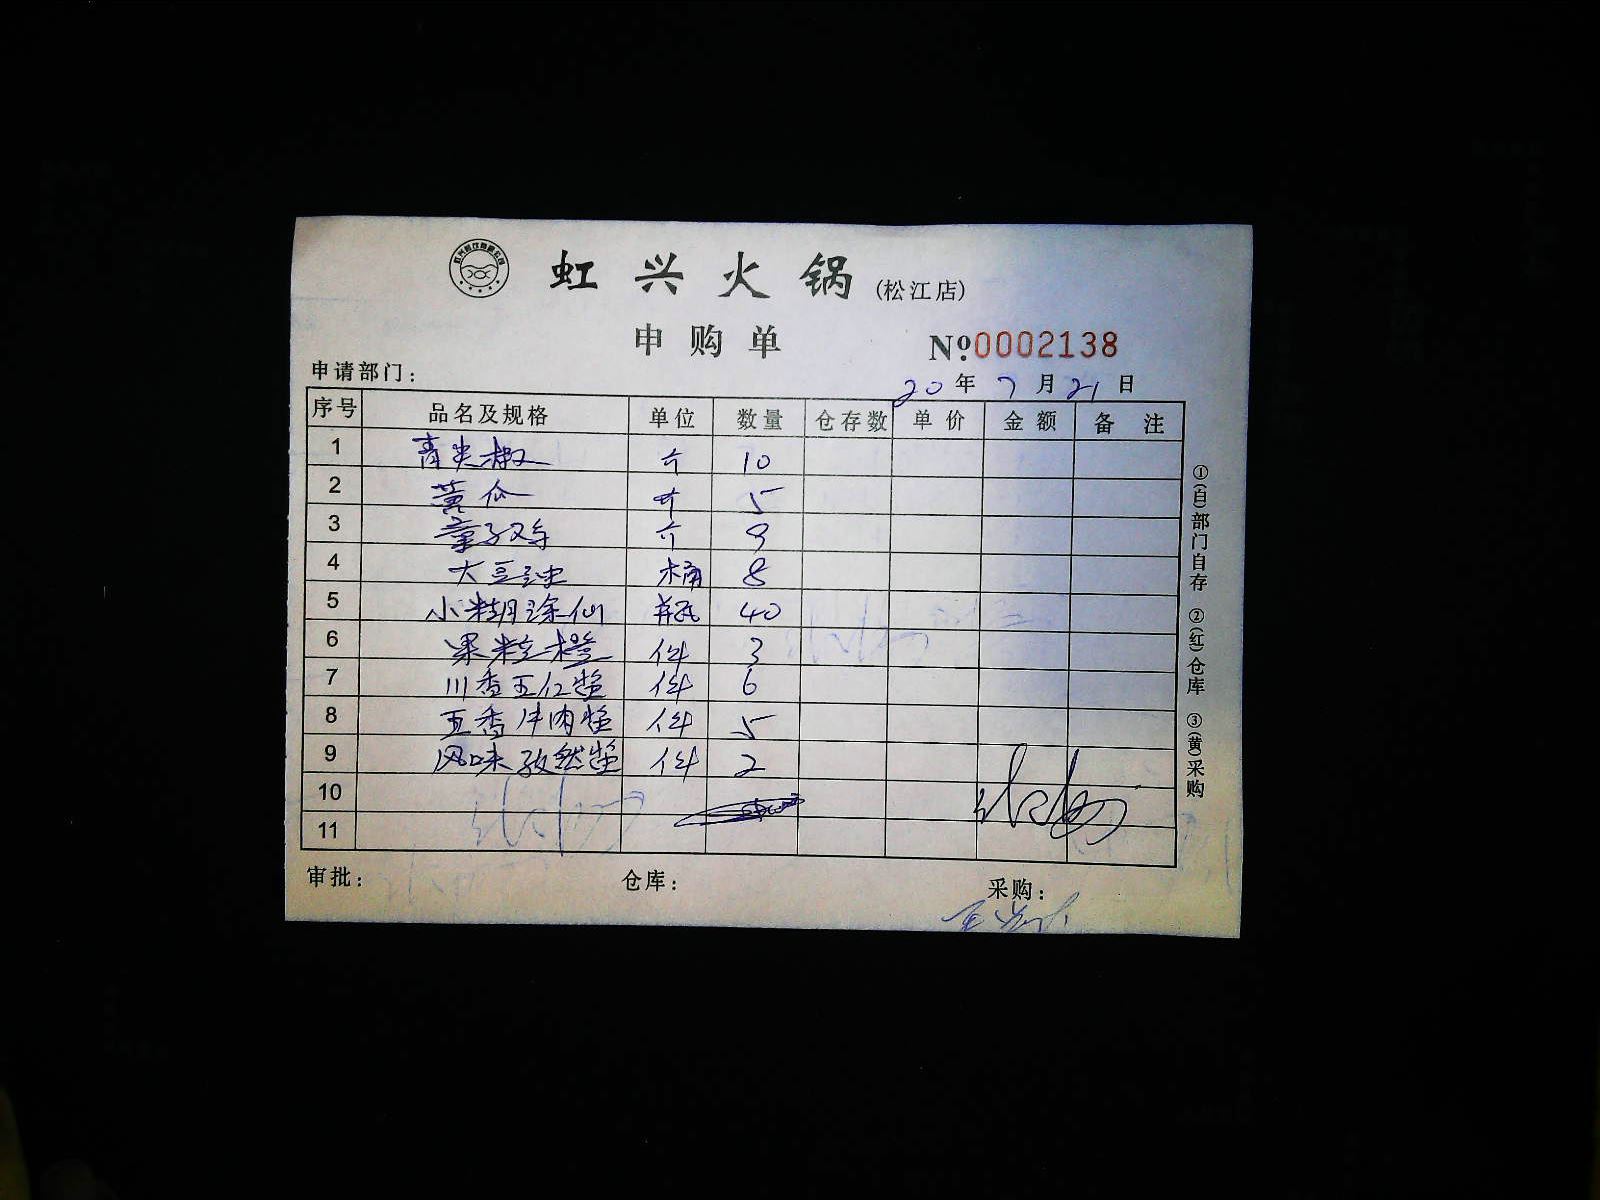 虹兴火锅 (松江店)
申购单
№ 0002138
申请部门：
20 年 7 月 21 日
序号 品名及规格 单位 数量 仓存数 单价 金额 备注
1 青尖椒 斤 10
2 黄瓜 斤 5
3 童子鸡 斤 9
4 大豆油 桶 8
5 小糊涂仙 瓶 40
6 果粒橙 件 3
7 川香五仁酱 件 6
8 五香牛肉酱 件 5
9 风味孜然酱 件 2
10
11
审批： 仓库： 采购：
①(白)部门自存 ②(红)仓库 ③(黄)采购